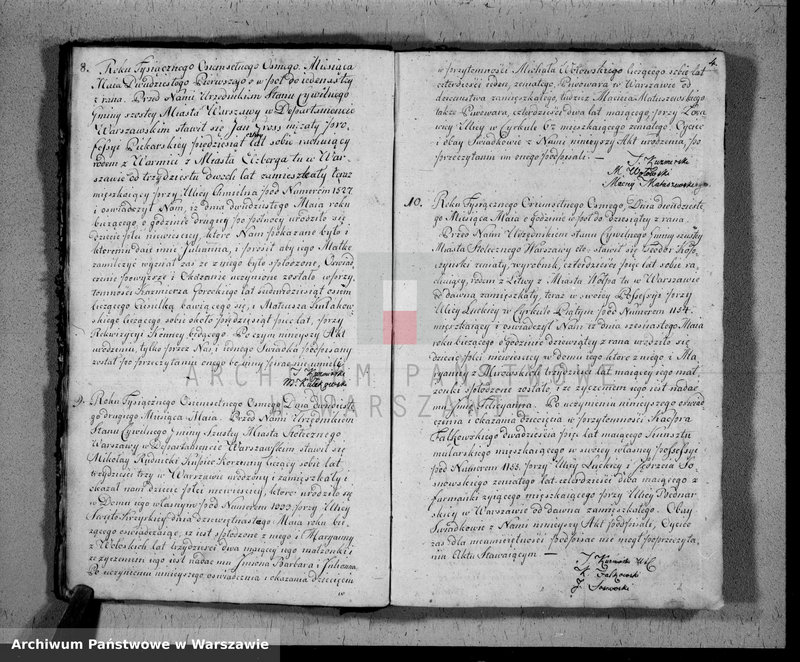 8. Roku Tysiącznego Ośmsetnego Osmego, Miesiąca
Maia Dwudziestego Pierwszego o w poł do iedenastey
z rana. Przed Nami Urzędnikiem Stanu Cywilnego
Gminy szostey Miasta Warszawy w Departamencie
Warszawskim stawił się Jan Gross mężaty pro,
fessyi Piekarskiey pięcdziesiąt lat sobie rachuiący
rodem z Warmii z Miasta tu w War-
szawie od trzydziestu dwoch lat zamieszkały teraz
mieszkaiący przy Ulicy Chmielna pod Numerem 1527.
i oswiadczył Nam, iż dnia dwudziestego Maia roku
bieżącego o godzinie drugiey po połnocy urodziło się
dziecie płci niewiesciey, ktore Nam pokazane było i
ktoremu daie imie Julianna, i prosił aby iego Matkę
zamilczyć wyznał zas że z niego było spłodzone, Oswiad,
czenie powyższe i Okazanie uczynione zostało w przy,
tomności Kazimierza Goreckiego lat siedmdziesiąt osm
liczącego bawiącego się, i Mateusza Kułakow,
skiego liczącego sobie około pięcdziesiąt pięc lat, przy
będącego. Po czym ninieyszy Akt
urodzenia, tylko przez Nas i iednego Swiadka podpisany
został po przeczytaniu onego bo inny pisac nie umieli
J. Kurowski
M. Kułakowski
9. Roku Tysiącznego Osmsetnego Osmego Dnia dwudzieste
go drugiego Miesiąca Maia. Przed Nami Urzędnikiem
Stanu Cywilnego Gminy Szostey Miasta Stołecznego
Warszawy w Departamencie Warszawskim stawił się
Mikołay Rudnicki Kupiec Korzenny liczący sobie lat
trzydzieści trzy w Warszawie urodzony i zamieszkały i
okazał nam dziecie płci niewiesciey, ktore urodziło się
w Domu iego własnym pod Numerem 1333. przy Ulicy
Swięto Krzyskiey dnia dziewiętnastego Maia roku bie,
żącego oswiadczaiąc, iż iest spłodzone z niego i Maryanny
z lat trzydzieści dwa maiącey iego małżonki i
że życzeniem iego iest nadac mu Imiona Barbara i Julianna
Po uczynieniu ninieyszego oswiadczenia i okazania dziecięcia
w
4.
w przytomności Michała Wołowskiego liczącego sobie lat
czterdzieści ieden, żonatego, Piwowara w Warszawie od
dzieciństwa zamieszkałego, tudzież Macieia Matuszewskiego
także Piwowara, czterdzieści dwa lat maiącego przy
Ulicy w Cyrkule 6 mieszkaiącego żonatego. Oyciec
i obay Swiadkowie z Nami ninieyszy Akt urodzenia po
przeczytaniu im onego podpisali. —
J. Kurowski
M. Wołowski
Maciey Matuszewski
10. Roku Tysiącznego Osmsetnego Osmego, Dnia dwudzieste,
go Miesiąca Maia o godzinie w poł do dziesiątey z rana.
Przed Nami Urzędnikiem Stanu Cywilnego Gminy szostey
Miasta Stołecznego Warszawy etc. stawił się Teodor
żonaty, wyrobnik, czterdzieści pięc lat sobie ra,
chuiący, rodem z Litwy z Miasta tu w Warszawie
od dawna zamieszkały, teraz w swoiey Possessyi przy
Ulicy w Cyrkule Piątym pod Numerem 1154.
mieszkaiący i oswiadczył Nam iż dnia szesnastego Maia
roku bieżącego o godzinie dziewiątey z rana urodziło się
dziecie płci niewiesciey w domu iego ktore z niego i Ma,
ryanny z trzydzieści lat maiącey iego mał,
żonki spłodzone zostało i że życzeniem iego iest nadac
mu Imie Felicyanna. Po uczynieniu ninieyszego oswiad
czenia i okazania dziecięcia w przytomności Kacpra
Falkowskiego dwadziescia pięc lat maiącego Kunsztu
mularskiego mieszkaiącego w swoiey własney possessyi
pod Numerem 1155. przy Ulicy i Jozefa So,
snowskiego żonatego lat czterdzieści maiącego z
furmanki żyiącego mieszkaiącego przy Ulicy
w Warszawie od dawna zamieszkałego. Obay
Swiadkowie z Nami ninieyszy Akt podpisali, Oyciec
zas dla nieumieiętności podpisac nie mogł po przeczyta,
niu Aktu Stawaiącym —
J. Kurowski
K. Falkowski
J. Sosnowski
ARCHIWUM PAŃSTWOWE
W WARSZAWIE
Archiwum Państwowe w Warszawie